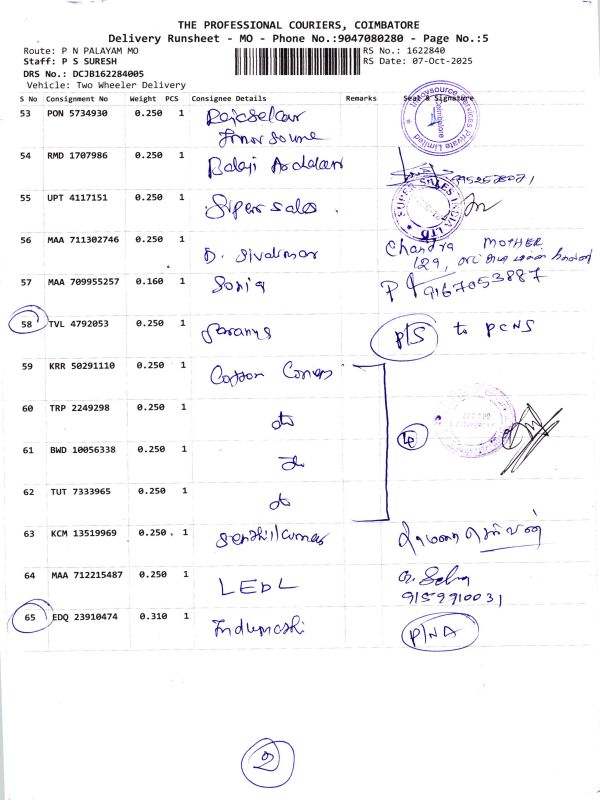 THE PROFESSIONAL COURIERS, COIMBATORE
Delivery Runsheet - MO - Phone No.:9047080280 - Page No.:5
Route: P N PALAYAM MO RS No.: 1622840
Staff: P S SURESH RS Date: 07-Oct-2025
DRS No.: DCJB162284005
Vehicle: Two Wheeler Delivery
S No Consignment No Weight PCS Consignee Details Remarks Seal & Signature
53 PON 5734930 0.250 1
54 RMD 1707986 0.250 1 Balaji
55 UPT 4117151 0.250 1 Super sales.
SUPER SALES INDIA LTD
56 MAA 711302746 0.250 1 D. Sivakumar Chandra MOTHER
129,
57 MAA 709955257 0.160 1 Soniya 9167053887
58 TVL 4792053 0.250 1 Saranya P/S to PCNS
59 KRR 50291110 0.250 1
60 TRP 2249298 0.250 1 do
61 BWD 10056338 0.250 1 do
62 TUT 7333965 0.250 1 do
63 KCM 13519969 0.250 1 Senthilkumar
64 MAA 712215487 0.250 1 LEDL
9159910031
65 EDQ 23910474 0.310 1 Indumathi P/NA
2